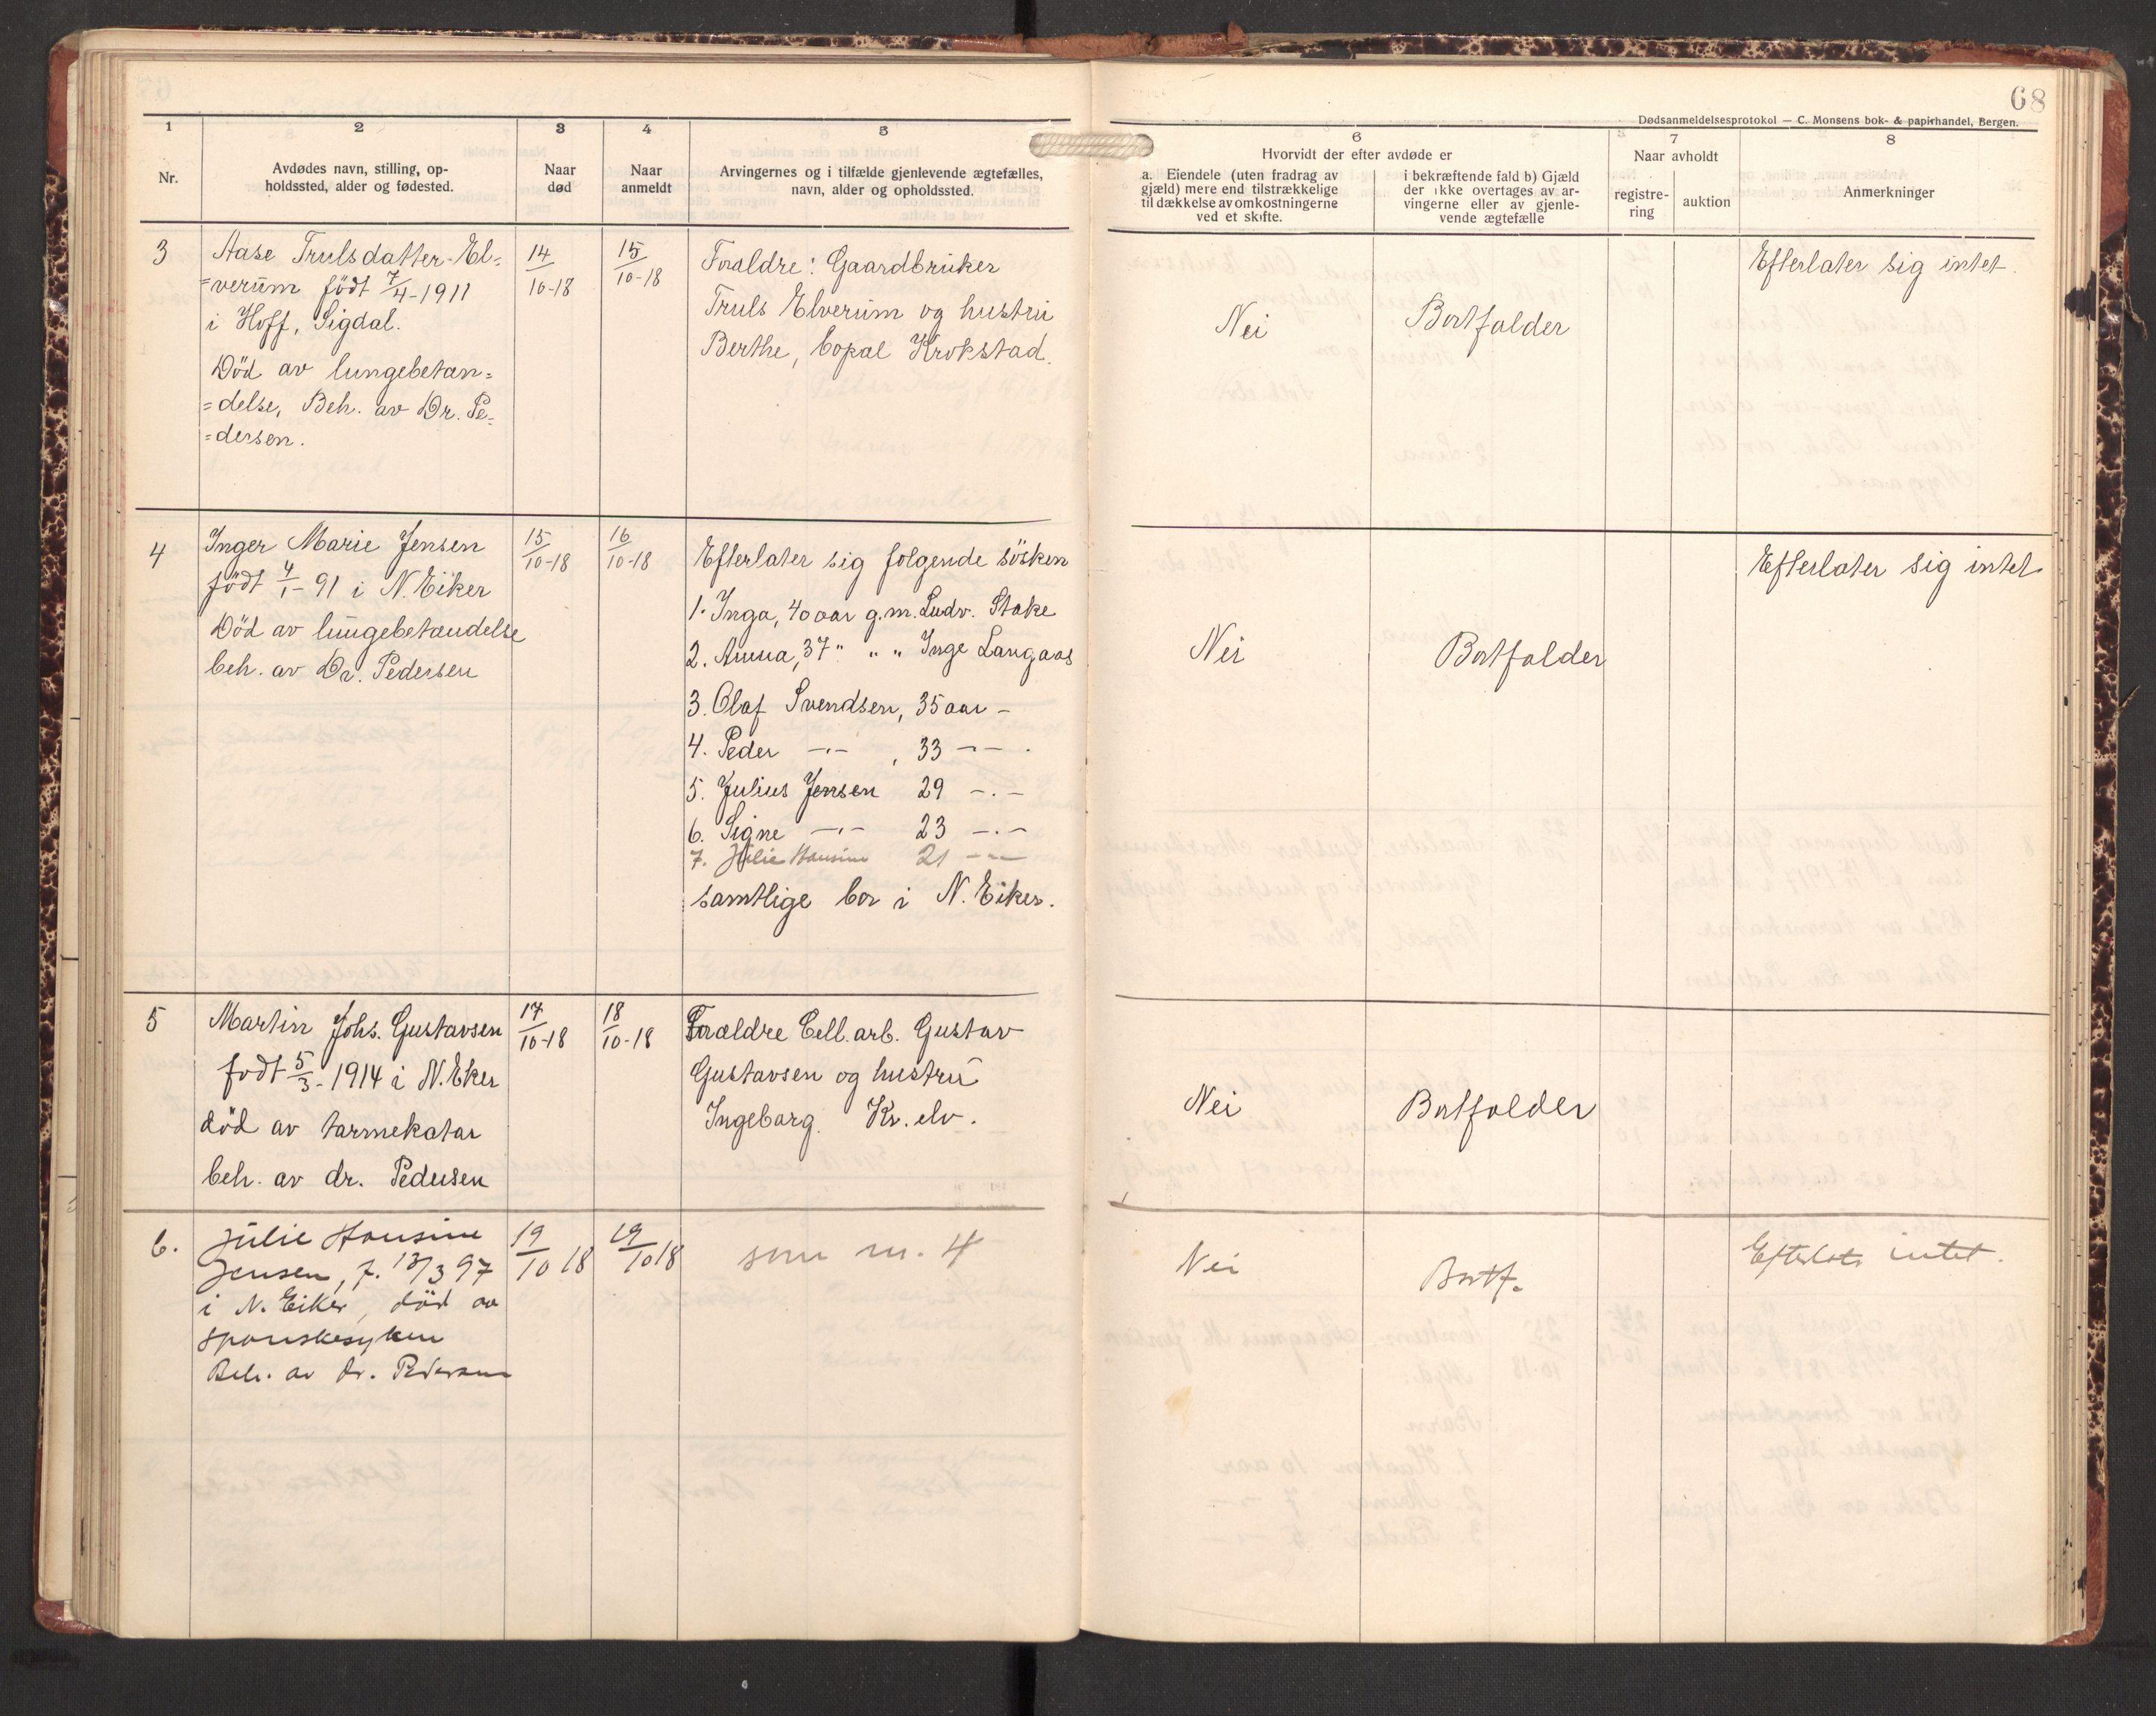 68
Dødsanmeldelsesprotokol — C. Monsens bok- & papirhandel, Bergen.
1 2 3 4 5 6 7 8
Nr.
Avdødes navn, stilling, op-
holdssted, alder og fødested.
Naar
død
Naar
anmeldt
Arvingernes og i tilfælde gjenlevende ægtefælles,
navn, alder og opholdssted.
Hvorvidt der efter avdøde er
a. Eiendele (uten fradrag av
gjæld) mere end tilstrækkelige
til dækkelse av omkostningerne
ved et skifte.
i bekræftende fald b) Gjæld
der ikke overtages av ar-
vingerne eller av gjenle-
vende ægtefælle
Naar avholdt
registre-
ring
auktion
Anmerkninger
3
Aase Trulsdatter-El=
=verum född 7/4-1911
i Hoff, Sigdal.
Död av lungebetan=
=delse, Beh. av Dr. Pe=
=dersen.
14/10-18
15/10-18
Foraldre: Gaardbruker
Truls Elverum og hustru
Berthe, bopæl Krokstad.
Nei
Bortfalder
Efterlater sig intet.
4
Inger Marie Jensen
född 4/1-91 i N. Eiker
Död av lungebetandelse
beh. av Dr. Pedersen
15/10-18
16/10-18
Efterlater sig folgende sösken
1. Inga, 40 aar g.m. Ludv. Stake
2. Anna, 37 " " " Inge Langaas
3. Olaf Svendsen, 35 aar -
4. Peder -"- , 33 -"-
5. Julius Jensen 29 -"-
6. Signe -"- 23 -"-
7. Julie Hansine 21 -"-
samtlige bor i N. Eiker.
Nei
Bortfalder
Efterlater sig intet
5
Martin Johs. Gustavsen
född 5/3-1914 i N. Eker
död av tarmekatar
beh. av dr. Pedersen
17/10-18
18/10-18
Forældre Cell. arb. Gustav
Gustavsen og hustru
Ingeborg. Kr. elv.
Nei
Bortfalder
6.
Julie Hansine
Jensen, f. 13/3 97
i N. Eiker, död av
spanskesyken
Beh. av dr. Pedersen
19/10 18
19/10 18
som nr. 4
Nei
Bortf.
Efterlater intet.